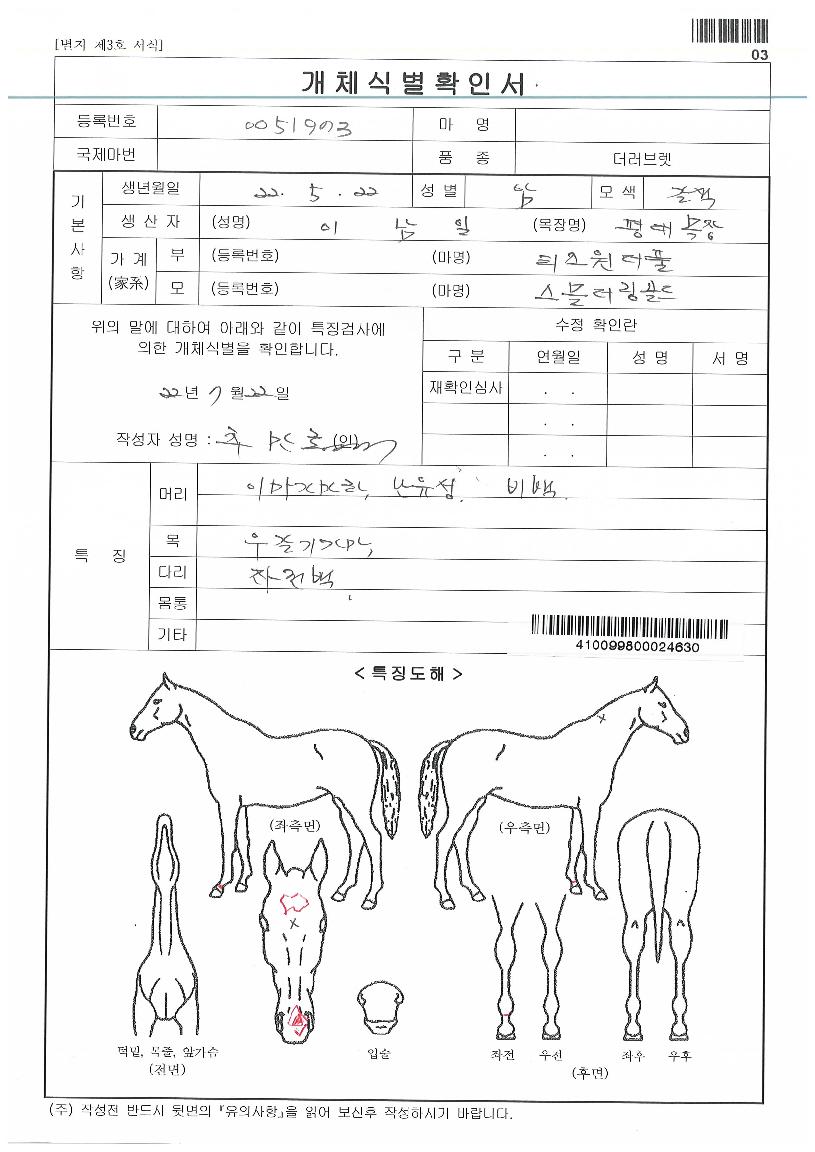 [별지 제3호 서식]
03
개체식별확인서
등록번호 0051903 마 명
국제마번 품 종 더러브렛
기본사항
생년월일 22. 5. 22 성별 암 모색 갈색
생산자 (성명) 이 남 일 (목장명) 평대목장
가계(家系) 부 (등록번호) (마명) 티즈원더풀
모 (등록번호) (마명) 스몰더링골드
위의 말에 대하여 아래와 같이 특징검사에
의한 개체식별을 확인합니다.
22년 7월 22일
작성자 성명 : (인)
수정 확인란
구 분 연월일 성 명 서 명
재확인심사 . .
. .
. .
특 징
머리 비백
목
다리 좌전백
몸통
기타
410099800024630
<특징도해>
(좌측면) (우측면)
턱밑, 목줄, 앞가슴 입술 좌전 우전 좌후 우후
(전면) (후면)
(주) 작성전 반드시 뒷면의 『유의사항』을 읽어 보신후 작성하시기 바랍니다.